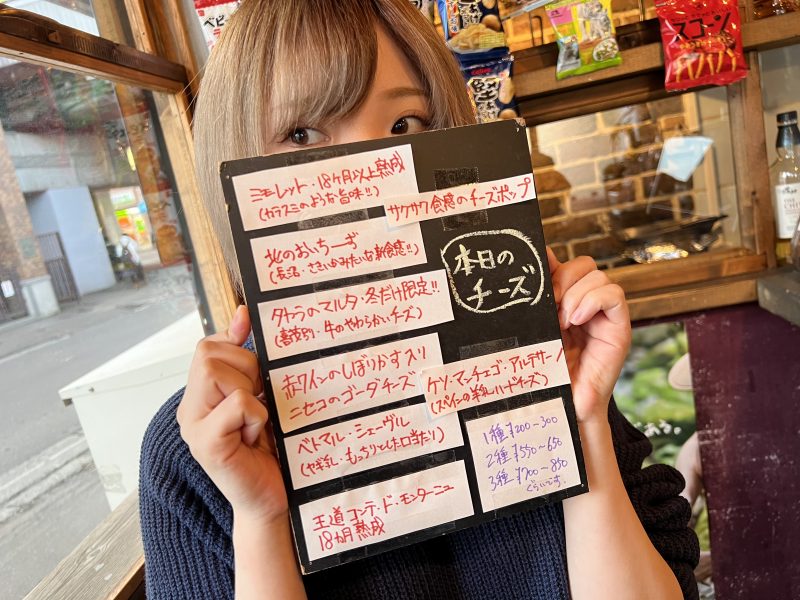 ベビース
スゴーン
ミモレット・18ヶ月以上熟成
(カラスミのような旨味!!)
サクサク食感のチーズポップ
北のおいちーず
(長沼・さきいかみたいな新食感!!)
本日の
チーズ
タカラのマルタ・冬だけ限定!!
(喜茂別・牛のやわらかいチーズ)
赤ワインのしぼりかす入り
ニセコのゴーダチーズ
ケソ・マンチェゴ・アルテサーノ
(スペインの羊乳ハードチーズ)
ペトマル・シェーヴル
(ヤギ乳・もっちりとした口当たり)
1種 ¥200~300
2種 ¥550~650
3種 ¥700~850
ぐらいです。
王道 コンテ・ド・モンターニュ
18ヵ月熟成